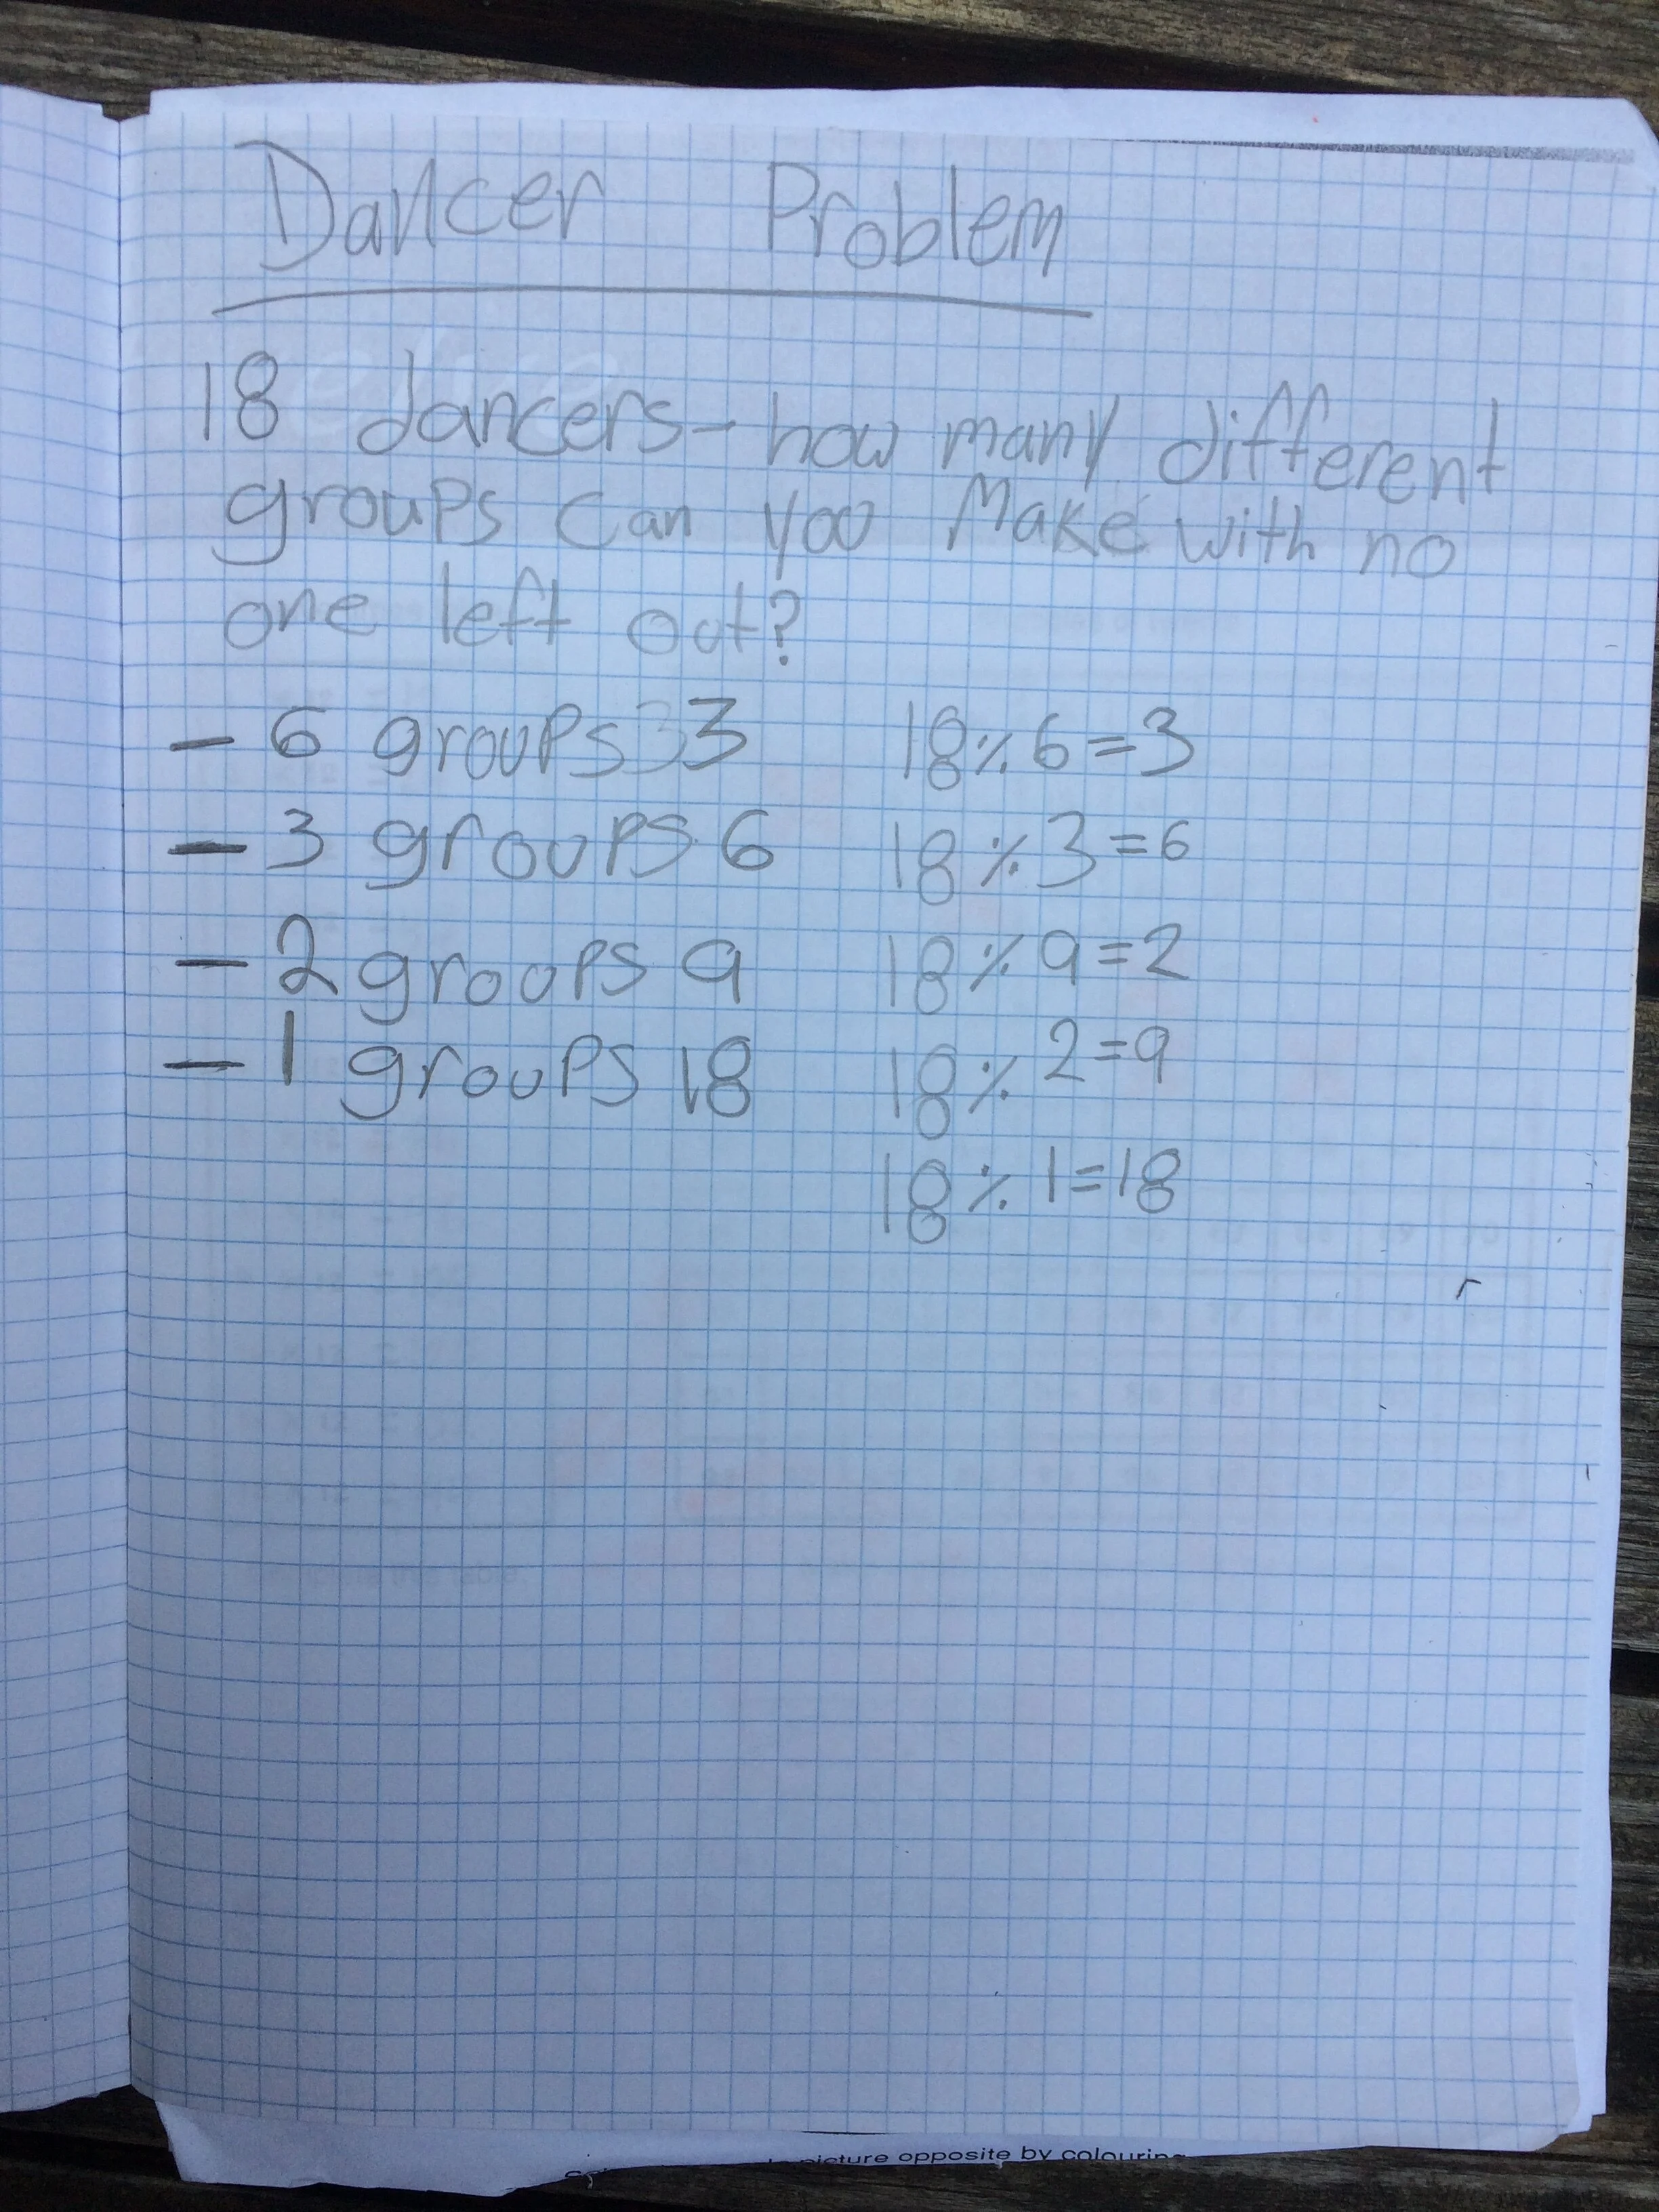 Dancer Problem
18 dancers - how many different
groups can you make with no
one left out?
- 6 groups 3 18 ÷ 6 = 3
- 3 groups 6 18 ÷ 3 = 6
- 2 groups 9 18 ÷ 9 = 2
- 1 groups 18 18 ÷ 2 = 9
18 ÷ 1 = 18
picture opposite by colouring